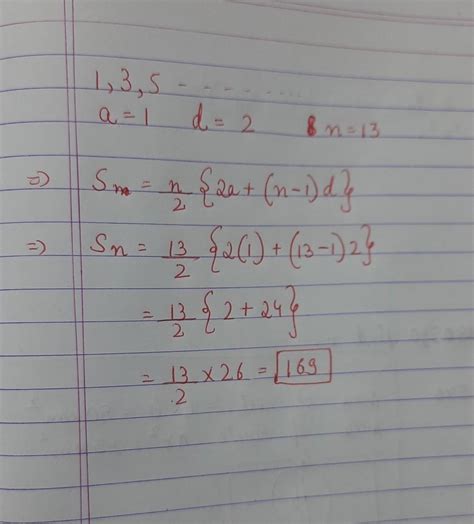 1, 3, 5 - - - - - - ...
a = 1 d = 2 n = 13
⇒ Sn = n/2 {2a + (n-1) d}
⇒ Sn = 13/2 {2(1) + (13-1) 2}
= 13/2 {2 + 24}
= 13/2 × 26 = 169